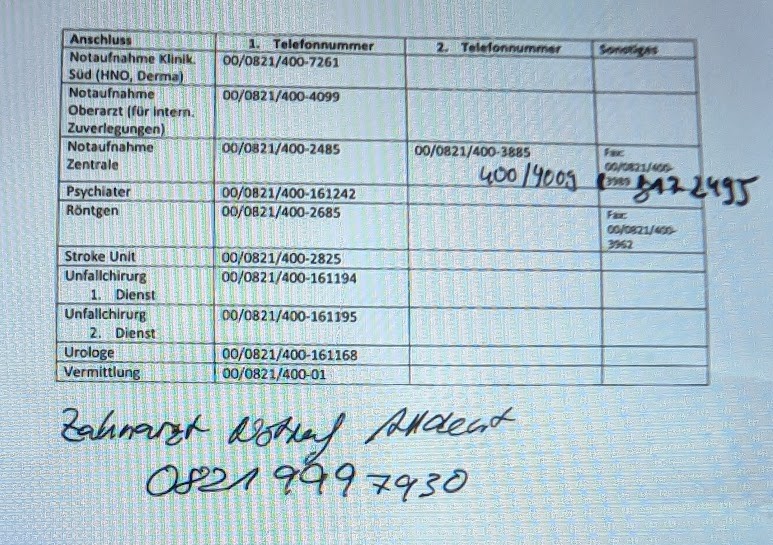 Anschluss 1. Telefonnummer 2. Telefonnummer Sonstiges
Notaufnahme Klinik. 00/0821/400-7261
Süd (HNO, Derma)
Notaufnahme 00/0821/400-4099
Oberarzt (für intern.
Zuverlegungen)
Notaufnahme 00/0821/400-2485 00/0821/400-3885 Fax:
Zentrale 400/4009 00/0821/400-
2495
Psychiater 00/0821/400-161242
Röntgen 00/0821/400-2685 Fax:
00/0821/400-
3962
Stroke Unit 00/0821/400-2825
Unfallchirurg 00/0821/400-161194
1. Dienst
Unfallchirurg 00/0821/400-161195
2. Dienst
Urologe 00/0821/400-161168
Vermittlung 00/0821/400-01
Zahnarzt Notruf
0821 999 7930